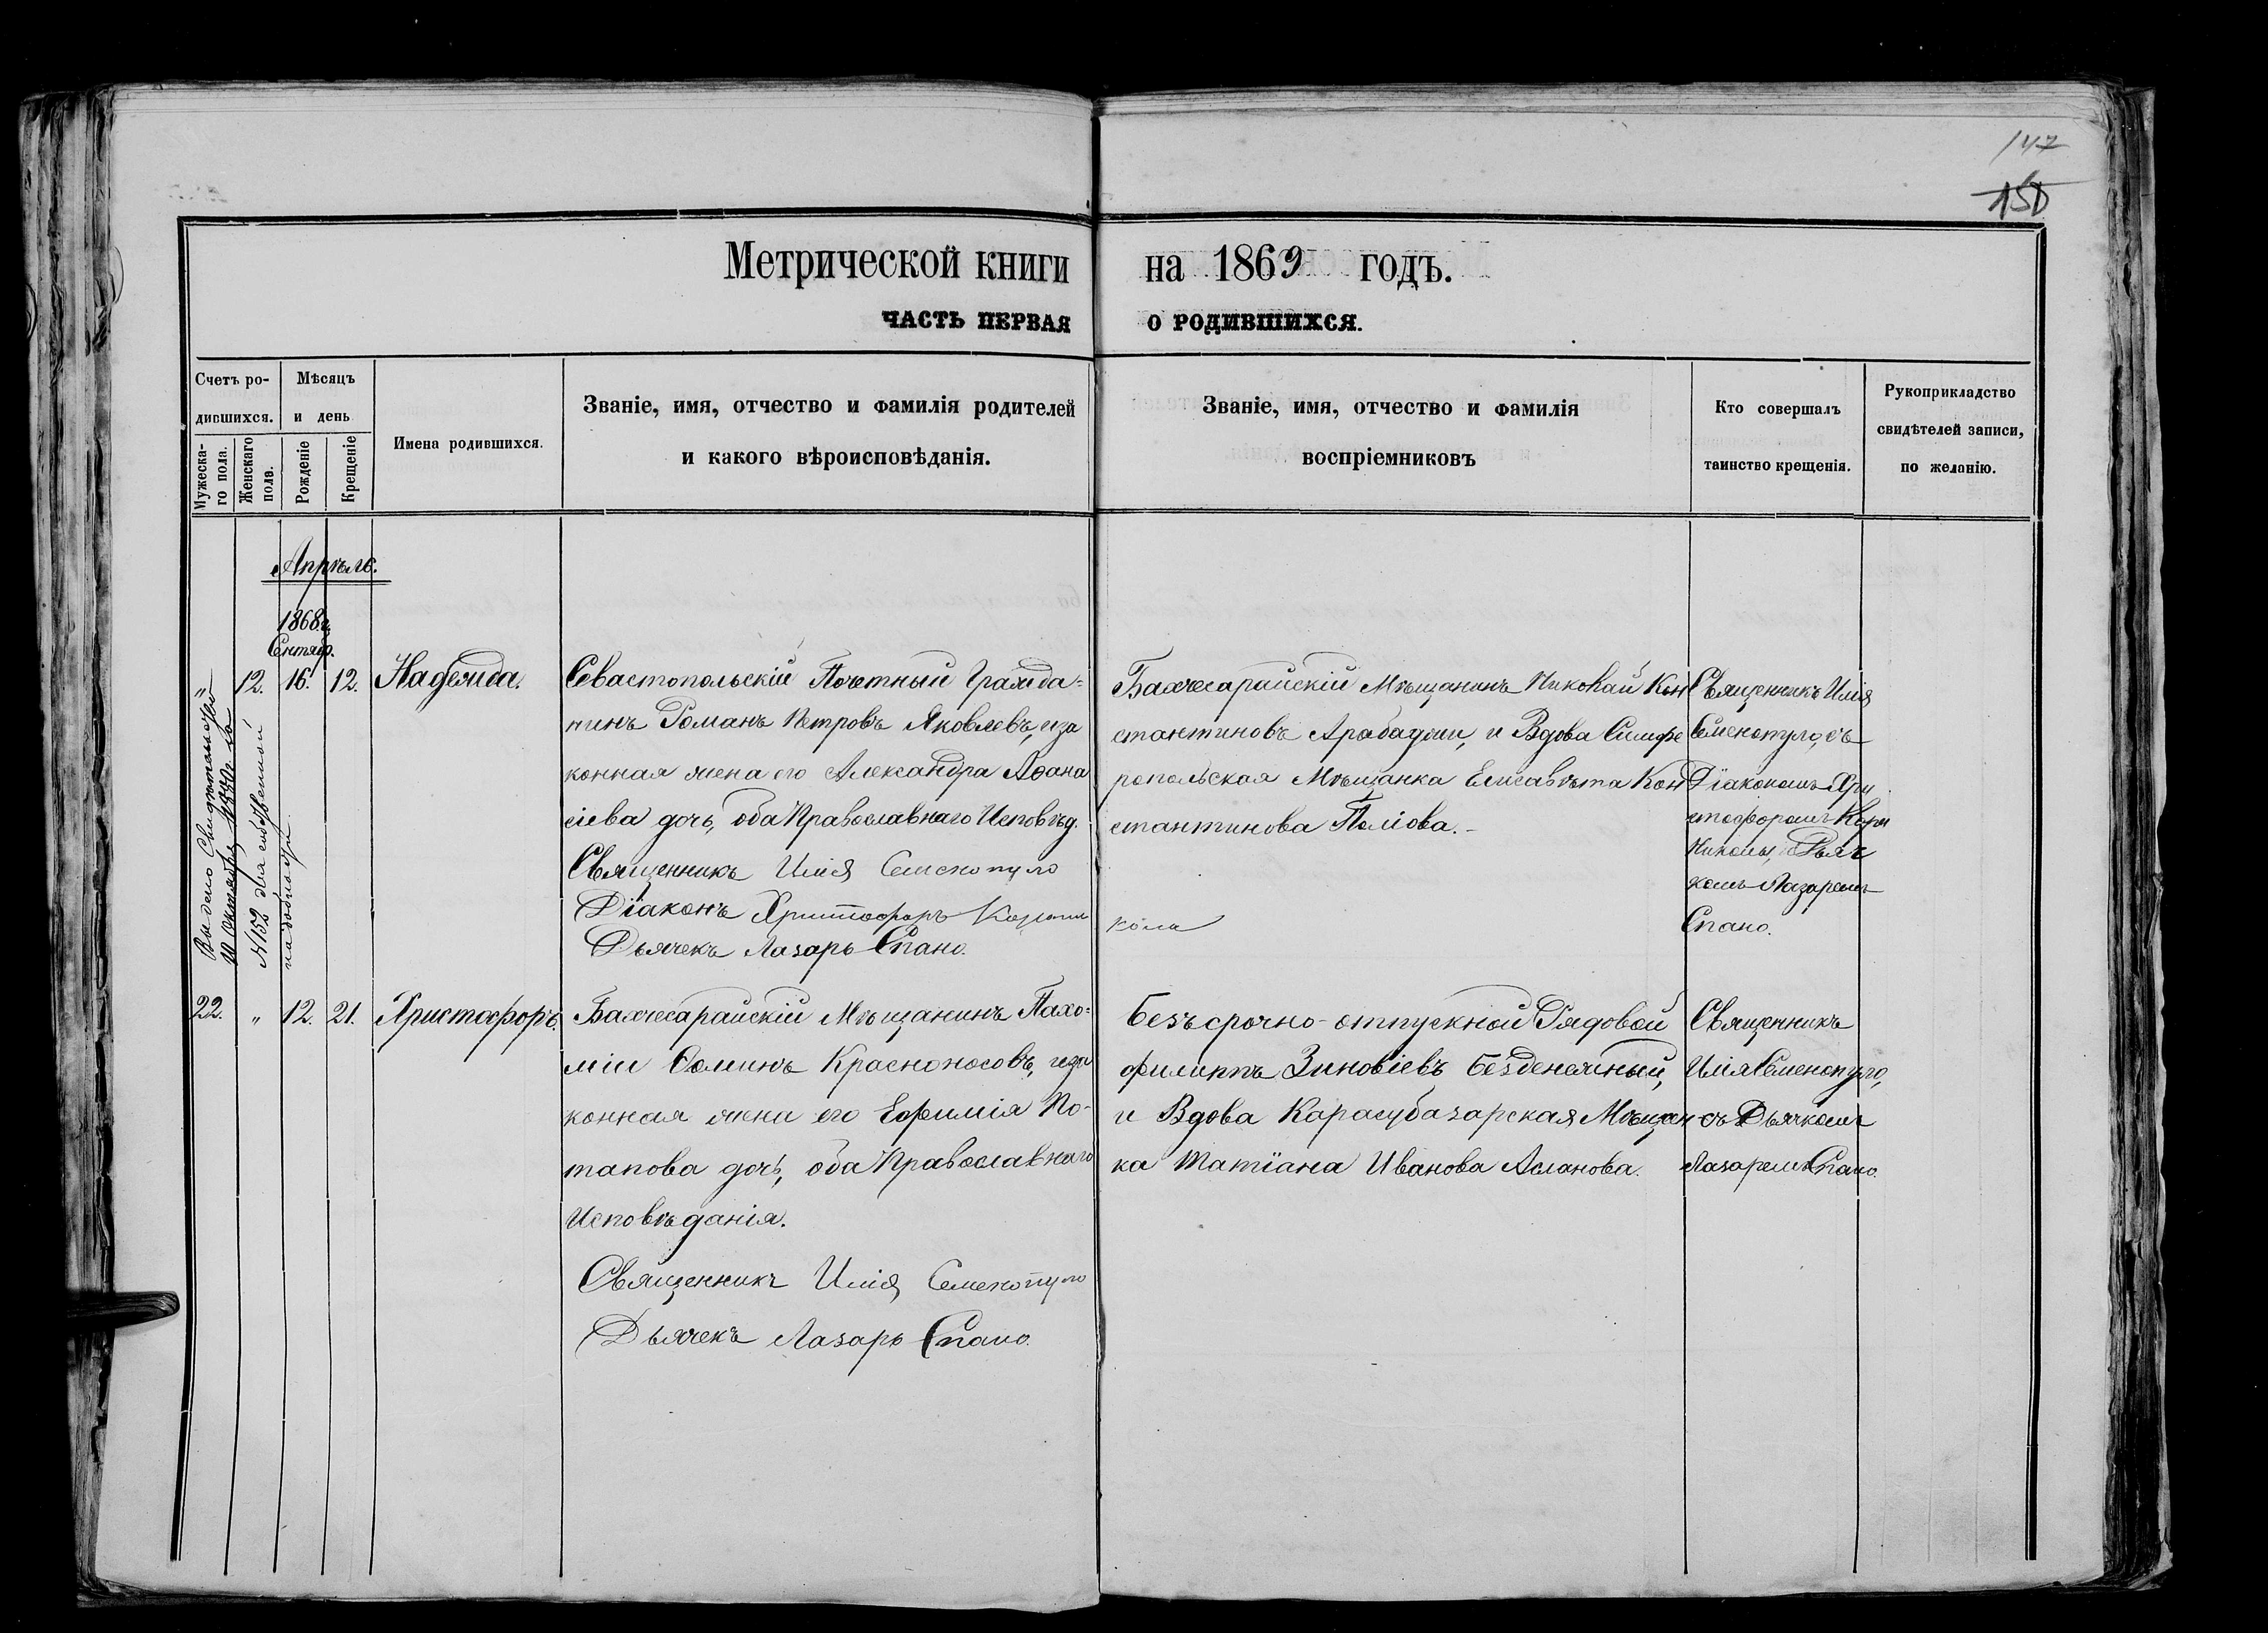 147
150
Метрической книги на 1869 годъ.
ЧАСТЬ ПЕРВАЯ О РОДИВШИХСЯ.
Счетъ ро-
дившихся.
Мѣсяцъ
и день
Мужеска-
го пола.
Женскаго
пола.
Рожденіе
Крещеніе
Имена родившихся.
Званіе, имя, отчество и фамилія родителей
и какого вѣроисповѣданія.
Званіе, имя, отчество и фамилія
воспріемниковъ
Кто совершалъ
таинство крещенія.
Рукоприкладство
свидѣтелей записи,
по желанію.
Апрѣль.
1868 г.
Сентяб.
" 12. 16. 12. Надежда.
Севастопольскій Почетный Гражда=
нинъ Романъ Петровъ Яковлевъ, иза
конная жена его Александра Аѳана
сіева дочь, оба Православнаго Исповѣд.
Священникъ Илія Семенопуло
Діаконъ Христофоръ Корони
кола
Дьячекъ Лазарь Спано.
Бахчесарайскій Мѣщанинъ Николай Кон
стантиновъ Арабаджи, и Вдова Симфе
ропольская Мѣщанка Елисавѣта Кон
стантинова Паліова.-
Священникъ Илія
Семенопуло, съ
Діакономъ Хри
стофоромъ Коро
николы, и Дьяч
комъ Лазаремъ
Спано.
Выдено Свидѣтельство
№ 152 для собственной
надобности.
22. " 12. 21. Христофоръ.
Бахчесарайскій Мѣщанинъ Пахо=
мій Ѳоминъ Красноносовъ, иза
конная жена его Ефимія По-
тапова дочь, оба Православнаго
Исповѣданія.
Священникъ Илія Семенопуло
Дьячекъ Лазарь Спано.
Безъсрочно-отпускной Рядовой
Филиппъ Зиновіевъ Безденежный,
и Вдова Карасубазарская Мѣщан
ка Татіана Иванова Асланова.
Священникъ
Илія Семенопуло,
съ Дьячкомъ
Лазаремъ Спано.